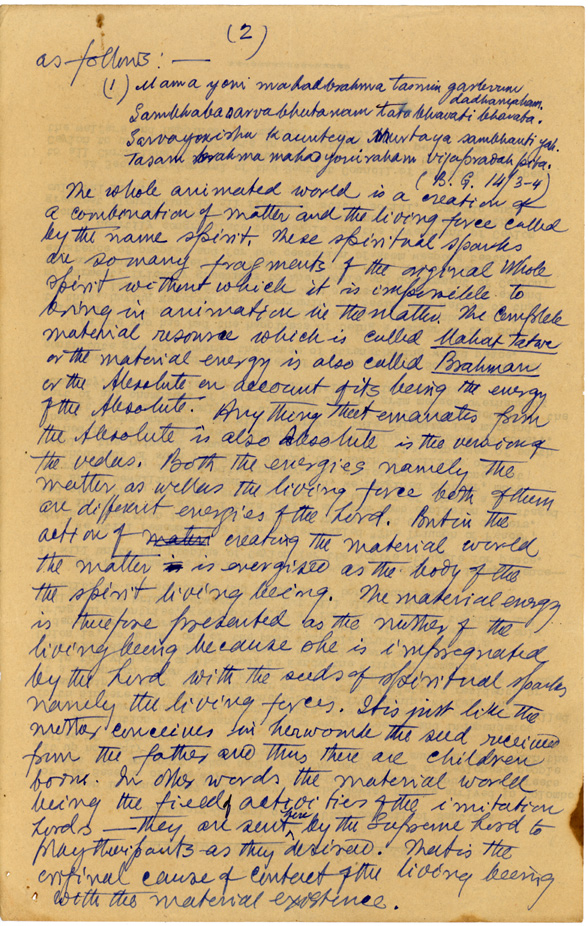 (2)
as follows: —
(1) Mama yoni mahadbrahma tasmin garbhum
dadhamyaham.
Sambhaba sarvabhutanam tato bhavati bharata.
Sarvayonishu Kaunteya Murtaya sambhanti yah.
Tasam brahma mahad yoniraham vijapradah pita.
(B. G. 14/3-4)
The whole animated world is a creation of
a combination of matter and the living force called
by the name spirit. These spiritual sparks
are so many fragments of the original Whole
spirit without which it is impossible to
bring in animation in the matter. The complete
material resource which is called Mahat Tatwa
or the material energy is also called Brahman
or the Absolute on account of its being the energy
of the Absolute. Any thing that emanates from
the Absolute is also Absolute is the version of
the vedas. Both the energies namely the
matter as well as the living force both of them
are different energies of the Lord. But in the
action of matter creating the material world
the matter is is energised as the body of the
the spirit living being. The material energy
is therefore presented as the mother of the
living being because she is impregnated
by the Lord with the seeds of spiritual sparks
namely the living forces. It is just like the
mother conceives in her womb the seed received
from the father and thus there are children
born. In other words the material world
being the field of activities of the imitation
Lords — they are sent here by the Supreme Lord to
play their parts as they desired. That is the
original cause of contact of the living being
with this material existence.